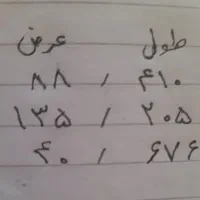 طول عرض
۴۱۰ / ۸۸
۲۰۵ / ۱۳۵
۶۷۶ / ۴۰